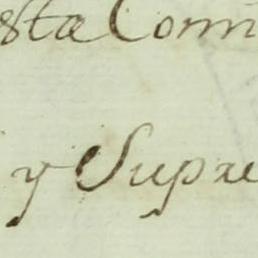 sta Com
y Supre